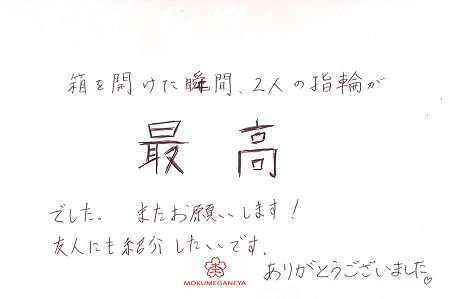 箱を開けた瞬間、2人の指輪が
最高
でした。 またお願いします!
友人にも紹介したいです。
ありがとうございました♡
MOKUMEGANEYA